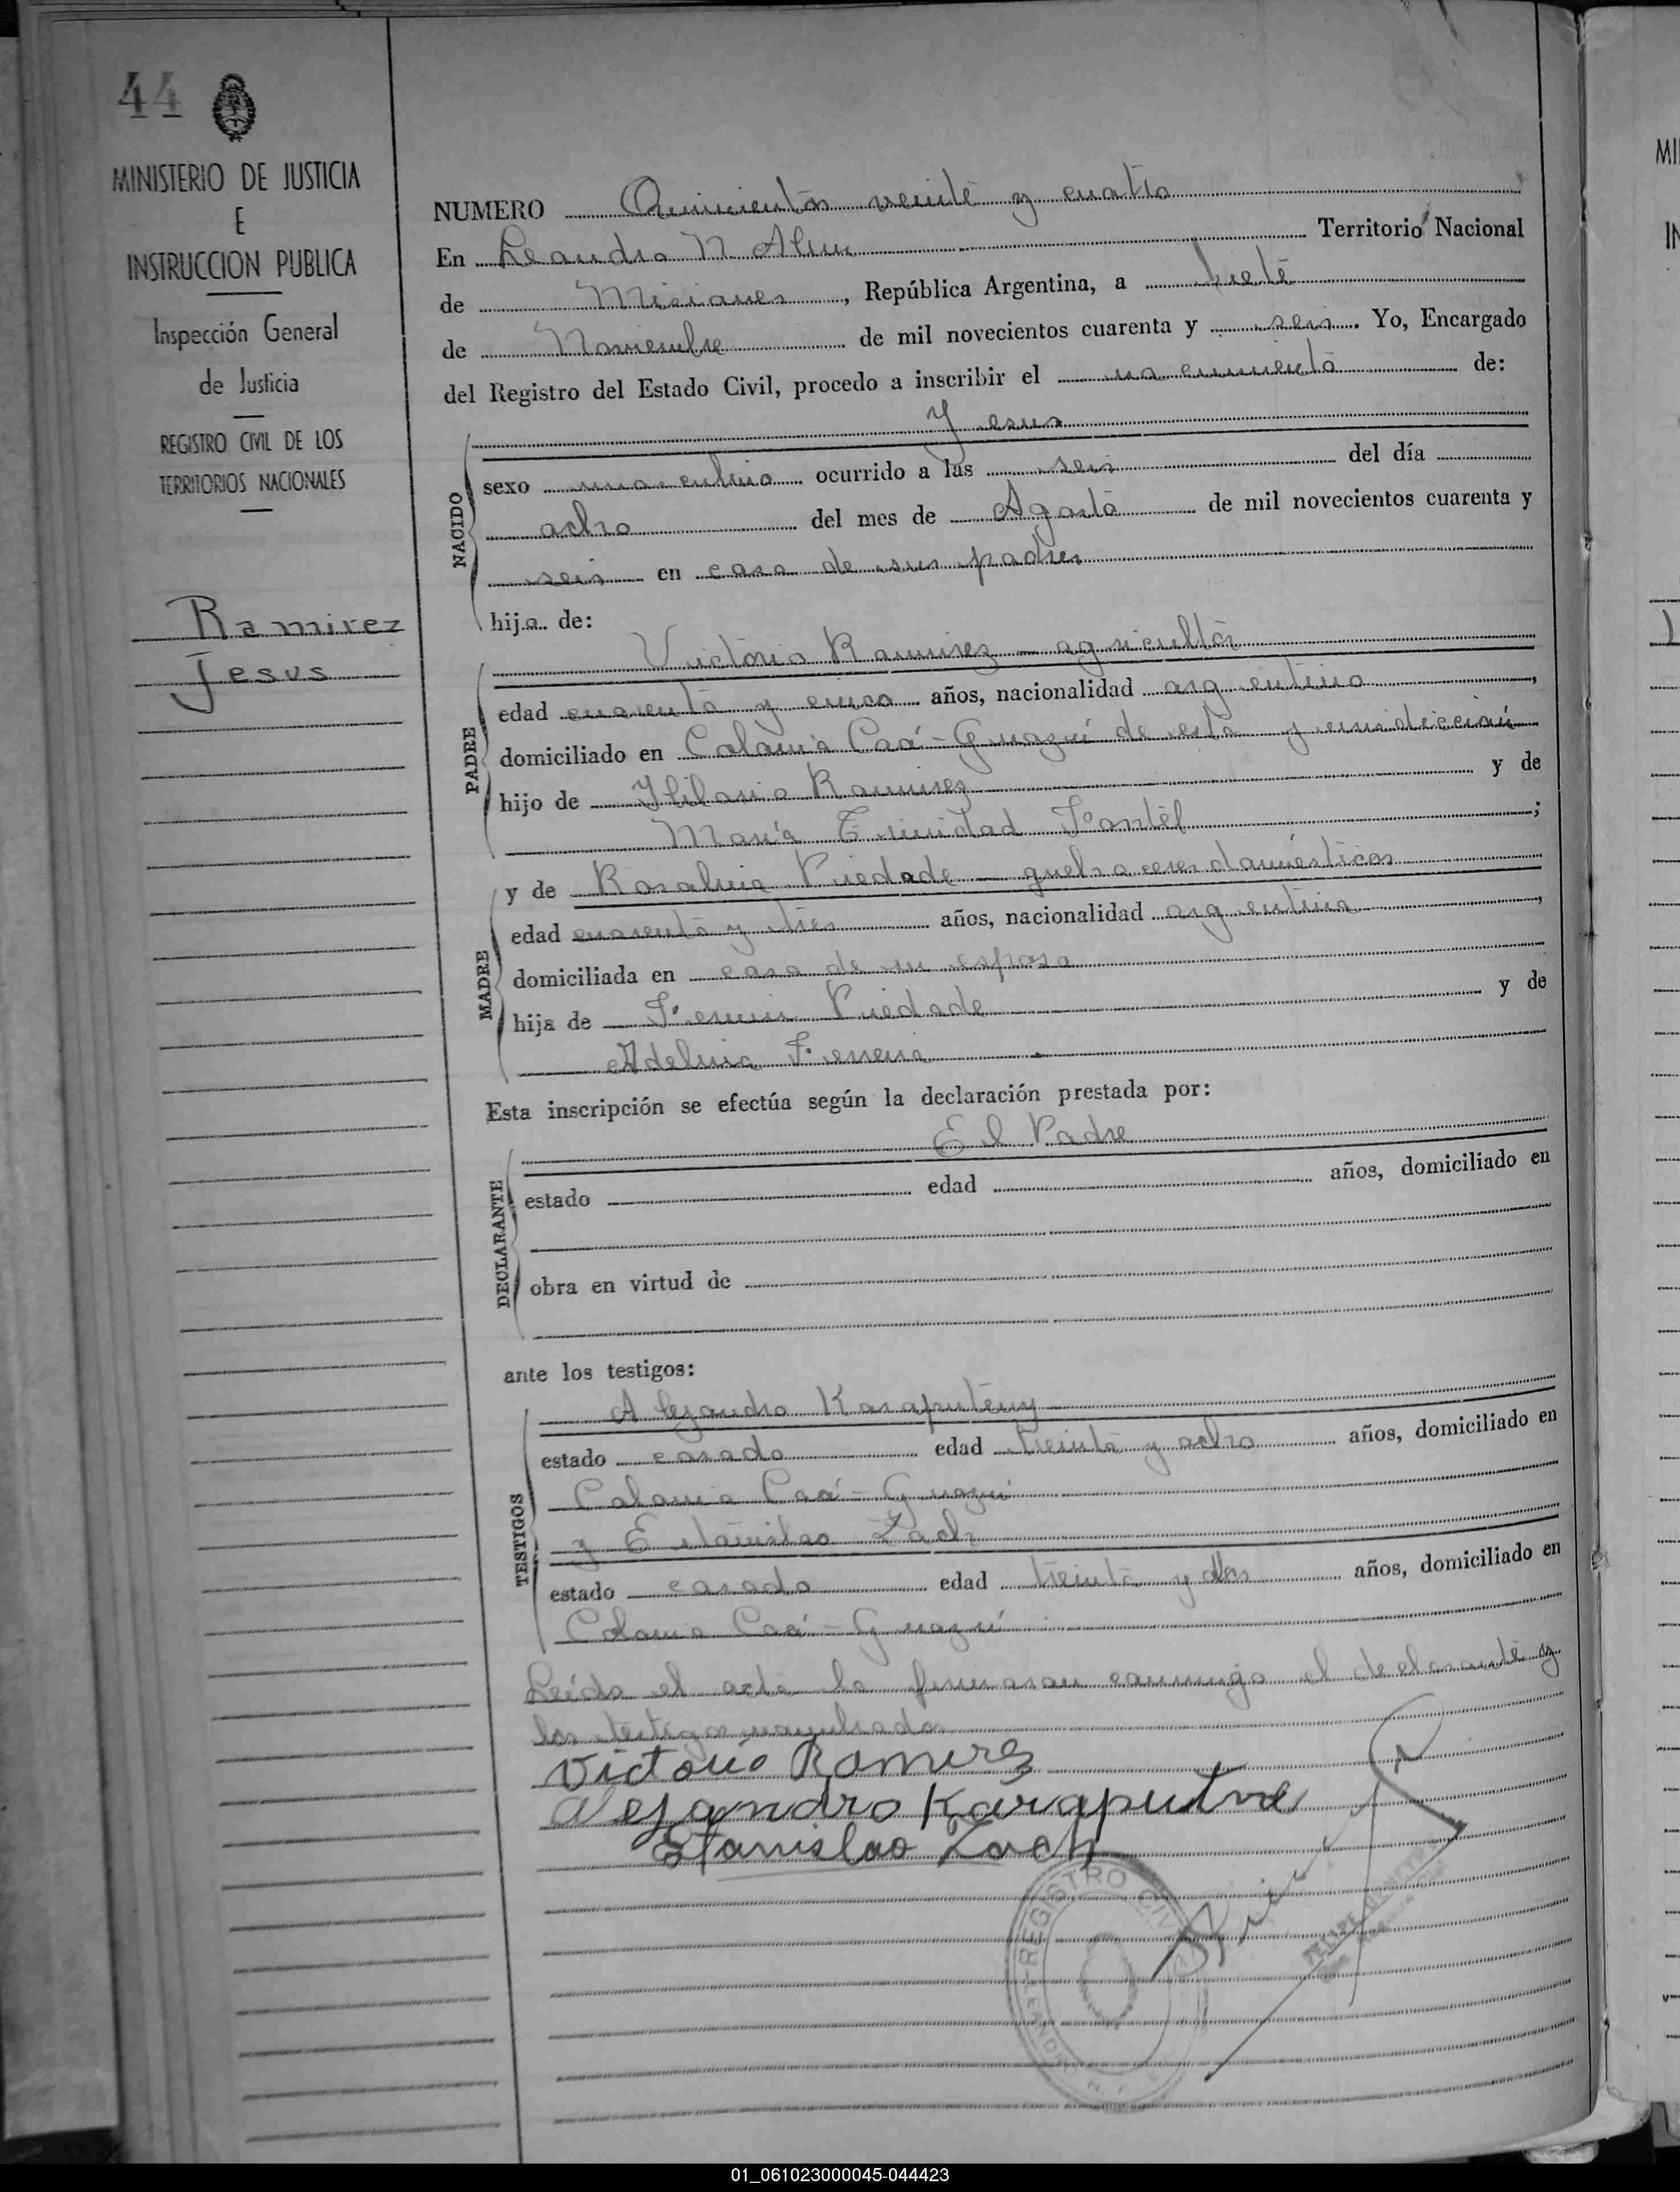 44
MINISTERIO DE JUSTICIA
E
INSTRUCCION PUBLICA
Inspección General
de Justicia
REGISTRO CIVIL DE LOS
TERRITORIOS NACIONALES
Ramirez
Jesus
NUMERO Quinientos veinte y cuatro
En Leandro N Alem Territorio Nacional
de Misiones, República Argentina, a siete
de Noviembre de mil novecientos cuarenta y seis. Yo, Encargado
del Registro del Estado Civil, procedo a inscribir el nacimiento de:
Jesus
NACIDO
sexo masculino ocurrido a las seis del día
ocho del mes de Agosto de mil novecientos cuarenta y
seis en casa de sus padres
hijo de:
Victorio Ramirez - agricultor
PADRE
edad cuarenta y cinco años, nacionalidad argentino,
domiciliado en Colonia Caá-Guazú de esta jurisdicción
hijo de Hilario Ramirez y de
María Trinidad Fontel;
y de Rosalina Piedade - quehaceres domésticos
MADRE
edad cuarenta y tres años, nacionalidad argentina,
domiciliada en casa de su esposo
hija de Fermin Piedade y de
Adelina Ferreira
Esta inscripción se efectúa según la declaración prestada por:
El Padre
DECLARANTE
estado edad años, domiciliado en
obra en virtud de
ante los testigos:
Alejandro Karaputeny
TESTIGOS
estado casado edad treinta y ocho años, domiciliado en
Colonia Caá-Guazú
y Estanislao Zach
estado casado edad treinta y dos años, domiciliado en
Colonia Caá-Guazú
Leída el acta la firmaron conmigo el declarante y
los testigos
Victorio Ramires
Alejandro
Stanislao Zach
REGISTRO CIVIL
LEANDRO N.
01_061023000045-044423